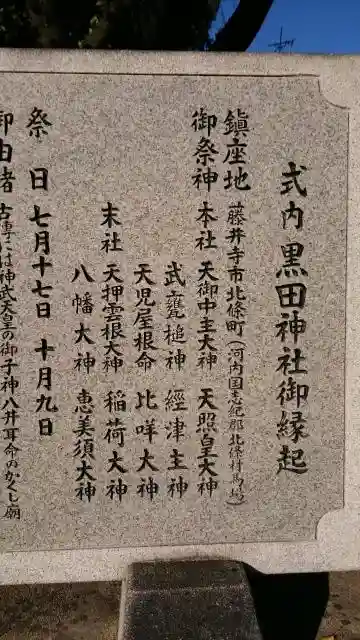 式内 黒田神社御縁起
鎮座地 藤井寺市北條町(河内国志紀郡北條村馬場)
御祭神 本社 天御中主大神 天照皇大神
武甕槌神 經津主神
天児屋根命 比咩大神
末社 天押雲根大神 稲荷大神
八幡大神 恵美須大神
祭日 七月十七日 十月九日
御由緒 古事には神武天皇の御子神八井耳命のかくし廟